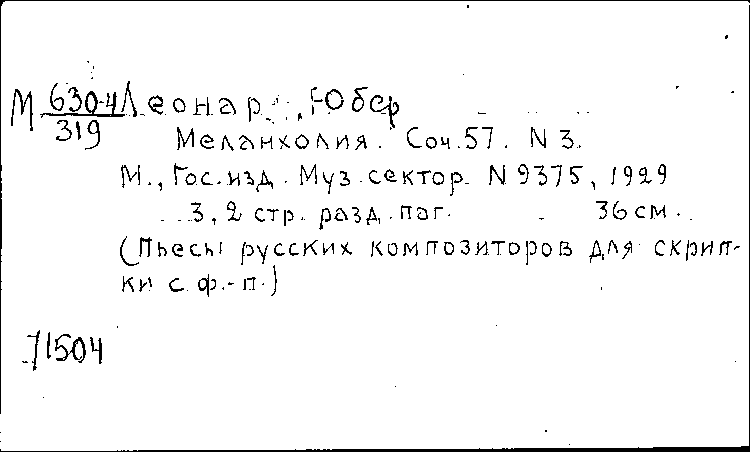 М 630-4/319 Леонар, Юбер
Меланхолия. Соч.57. N 3.
М., Гос.изд. Муз.сектор. N 9375, 1929
3, 2 стр. разд. паг. 36 см.
(Пьесы русских композиторов для скрип-
ки с ф.-п.)
71504